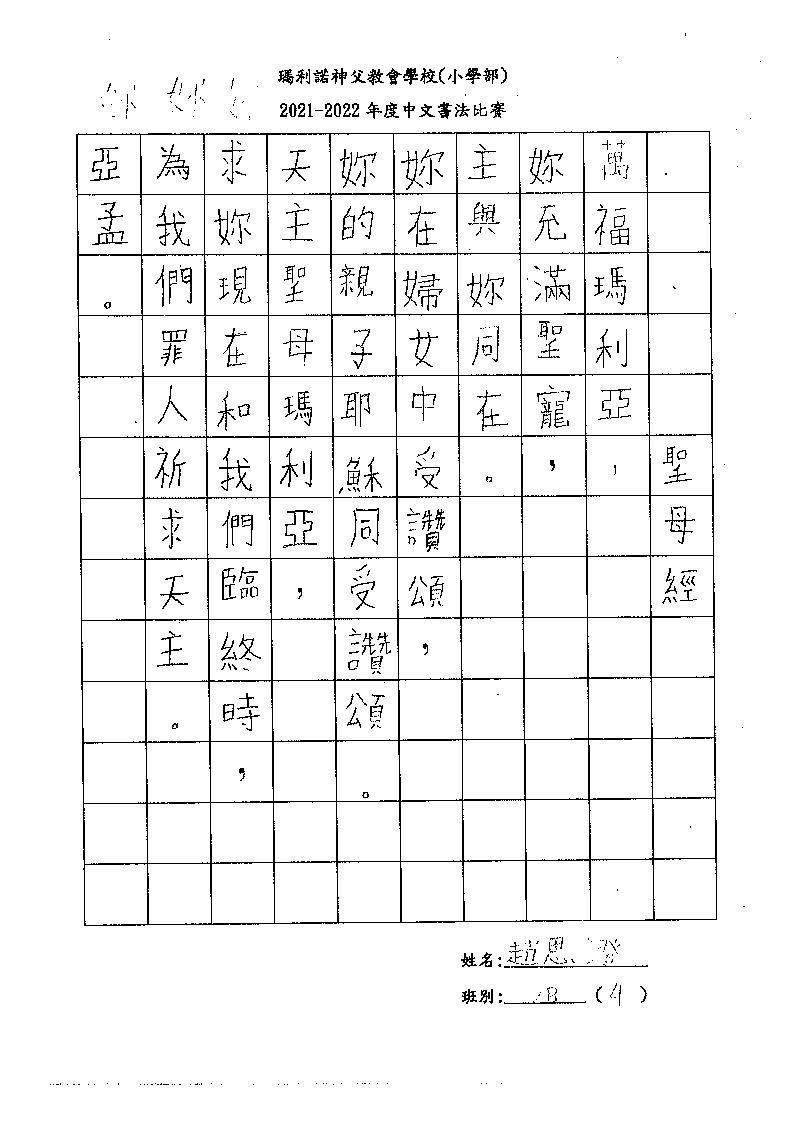 瑪利諾神父教會學校(小學部)
2021-2022 年度中文書法比賽
聖母經
萬福瑪利亞，
妳充滿聖寵，
主與妳同在。
妳在婦女中受讚頌，
妳的親子耶穌同受讚頌。
天主聖母瑪利亞，
求妳現在和我們臨終時，
為我們罪人祈求天主。
亞孟。
姓名:趙恩
班別: B (4)